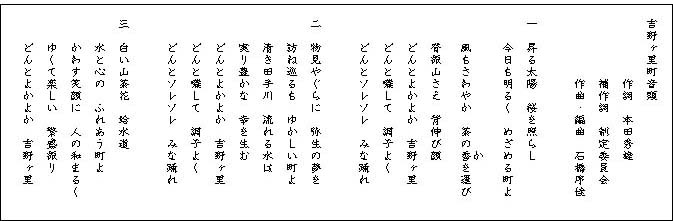 吉野ヶ里町音頭
作詞　本田秀雄
補作詞　制定委員会
作曲・編曲　石橋序佳
一　昇る太陽　桜を照らし
今日も明るく　めざめる町よ
風もさわやか　茶の香を運び
か
脊振山さえ　背伸び顔
どんとよかよか　吉野ヶ里
どんと囃して　調子よく
どんとソレソレ　みな踊れ
二　物見やぐらに　弥生の夢を
訪ね巡るも　ゆかしい町よ
清き田手川　流れる水は
実り豊かな　幸を生む
どんとよかよか　吉野ヶ里
どんと囃して　調子よく
どんとソレソレ　みな踊れ
三　白い山茶花　給水道
水と心の　ふれあう町よ
かわす笑顔に　人の和まるく
ゆくて楽しい　繁盛振り
どんとよかよか　吉野ヶ里